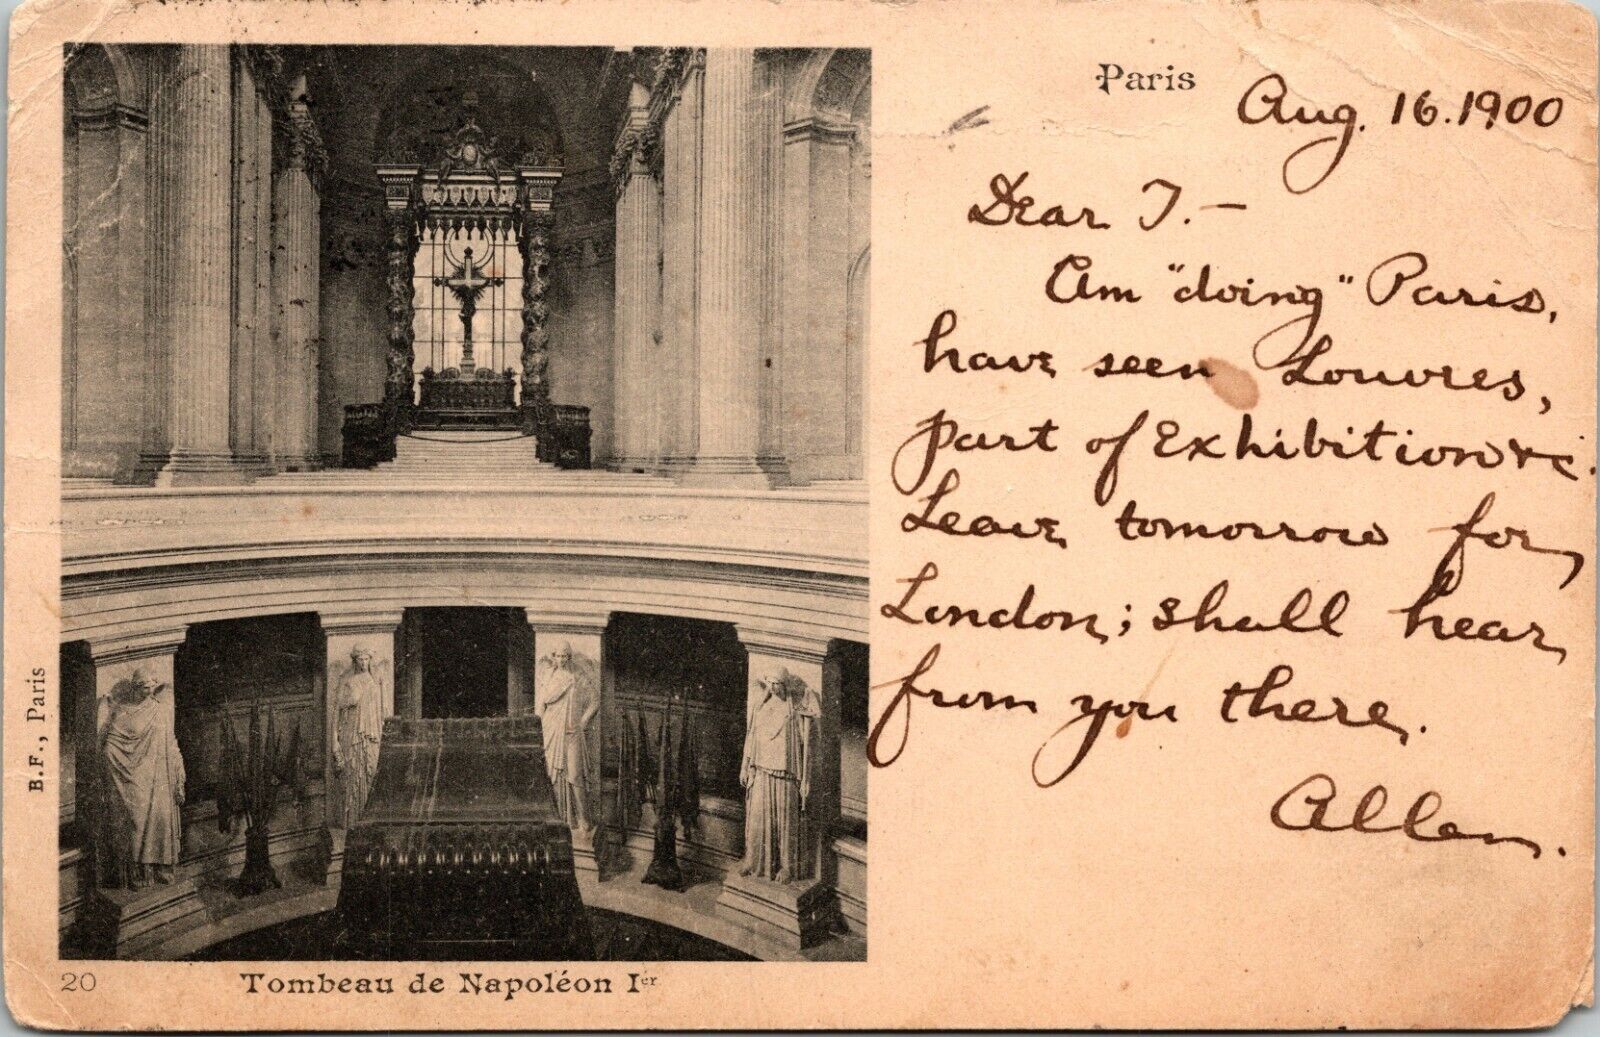 Paris
Aug. 16. 1900
Dear T. —
Am "doing" Paris,
have seen Louvres,
part of Exhibition &c.
Leave tomorrow for
London; shall hear
from you there.
Allen.
B.F., Paris
20 Tombeau de Napoléon Ier